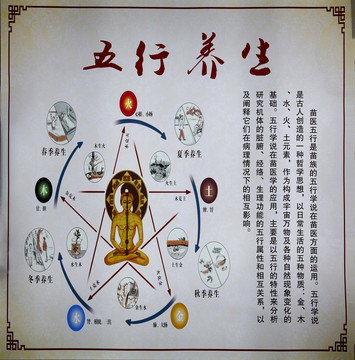 五行养生
苗医五行是苗族的五行学说在苗医方面的运用。五行学说
是古人创造的一种哲学思想，以日常生活的五种物质：金、木
、水、火、土元素，作为构成宇宙万物及各种自然现象变化的
基础。五行学说在苗医学的应用，主要是以五行的特性来分析
研究机体的脏腑、经络、生理功能的五行属性和相互关系，以
及阐释它们在病理情况下的相互影响。
火
心脏、小肠
春季养生
木生火
夏季养生
火生土
木
土
冬季养生
水生木
土生金
秋季养生
金生水
水
金
肺、大肠